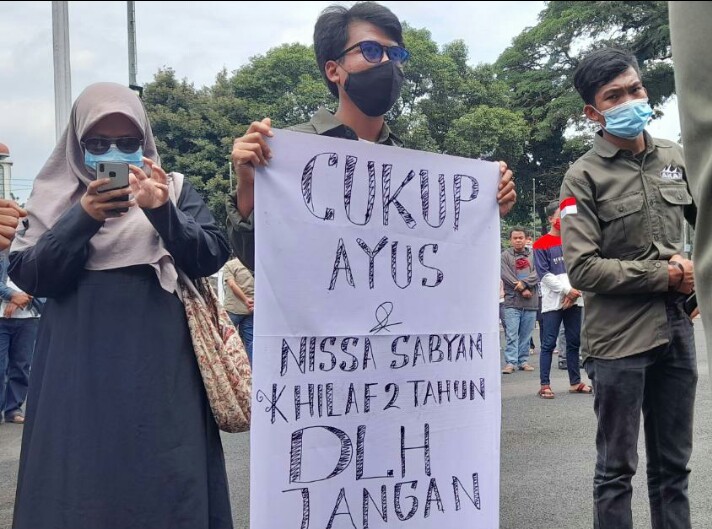 CUKUP
AYUS
&
NISSA SABYAN
KHILAF 2 TAHUN
DLH
JANGAN